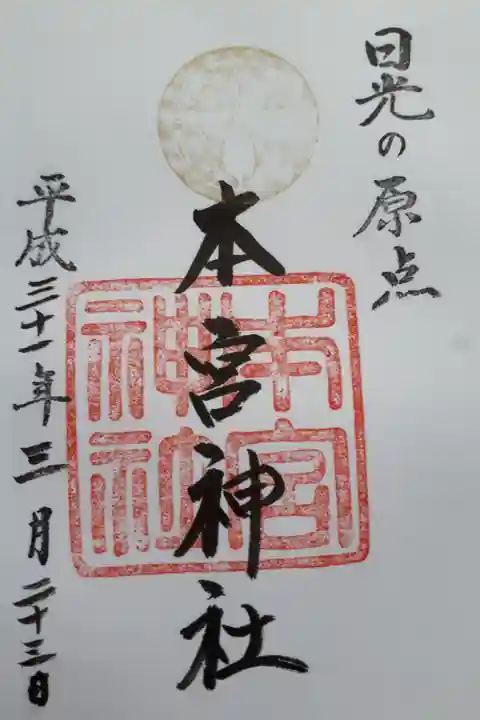 日光の原点
本宮神社
平成三十一年三月二十三日
本宮神社